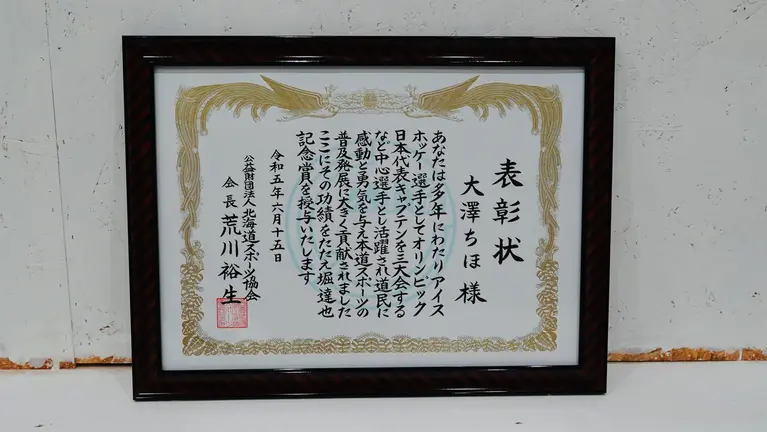 表彰状
大澤ちほ 様
あなたは多年にわたりアイス
ホッケー選手としてオリンピック
日本代表キャプテンを三大会する
など中心選手とし活躍され道民に
感動と勇気を与え本道スポーツの
普及発展に大きく貢献されました
ここにその功績をたたえ堀達也
記念賞を授与いたします
令和五年六月十五日
公益財団法人 北海道スポーツ協会
会長 荒川裕生